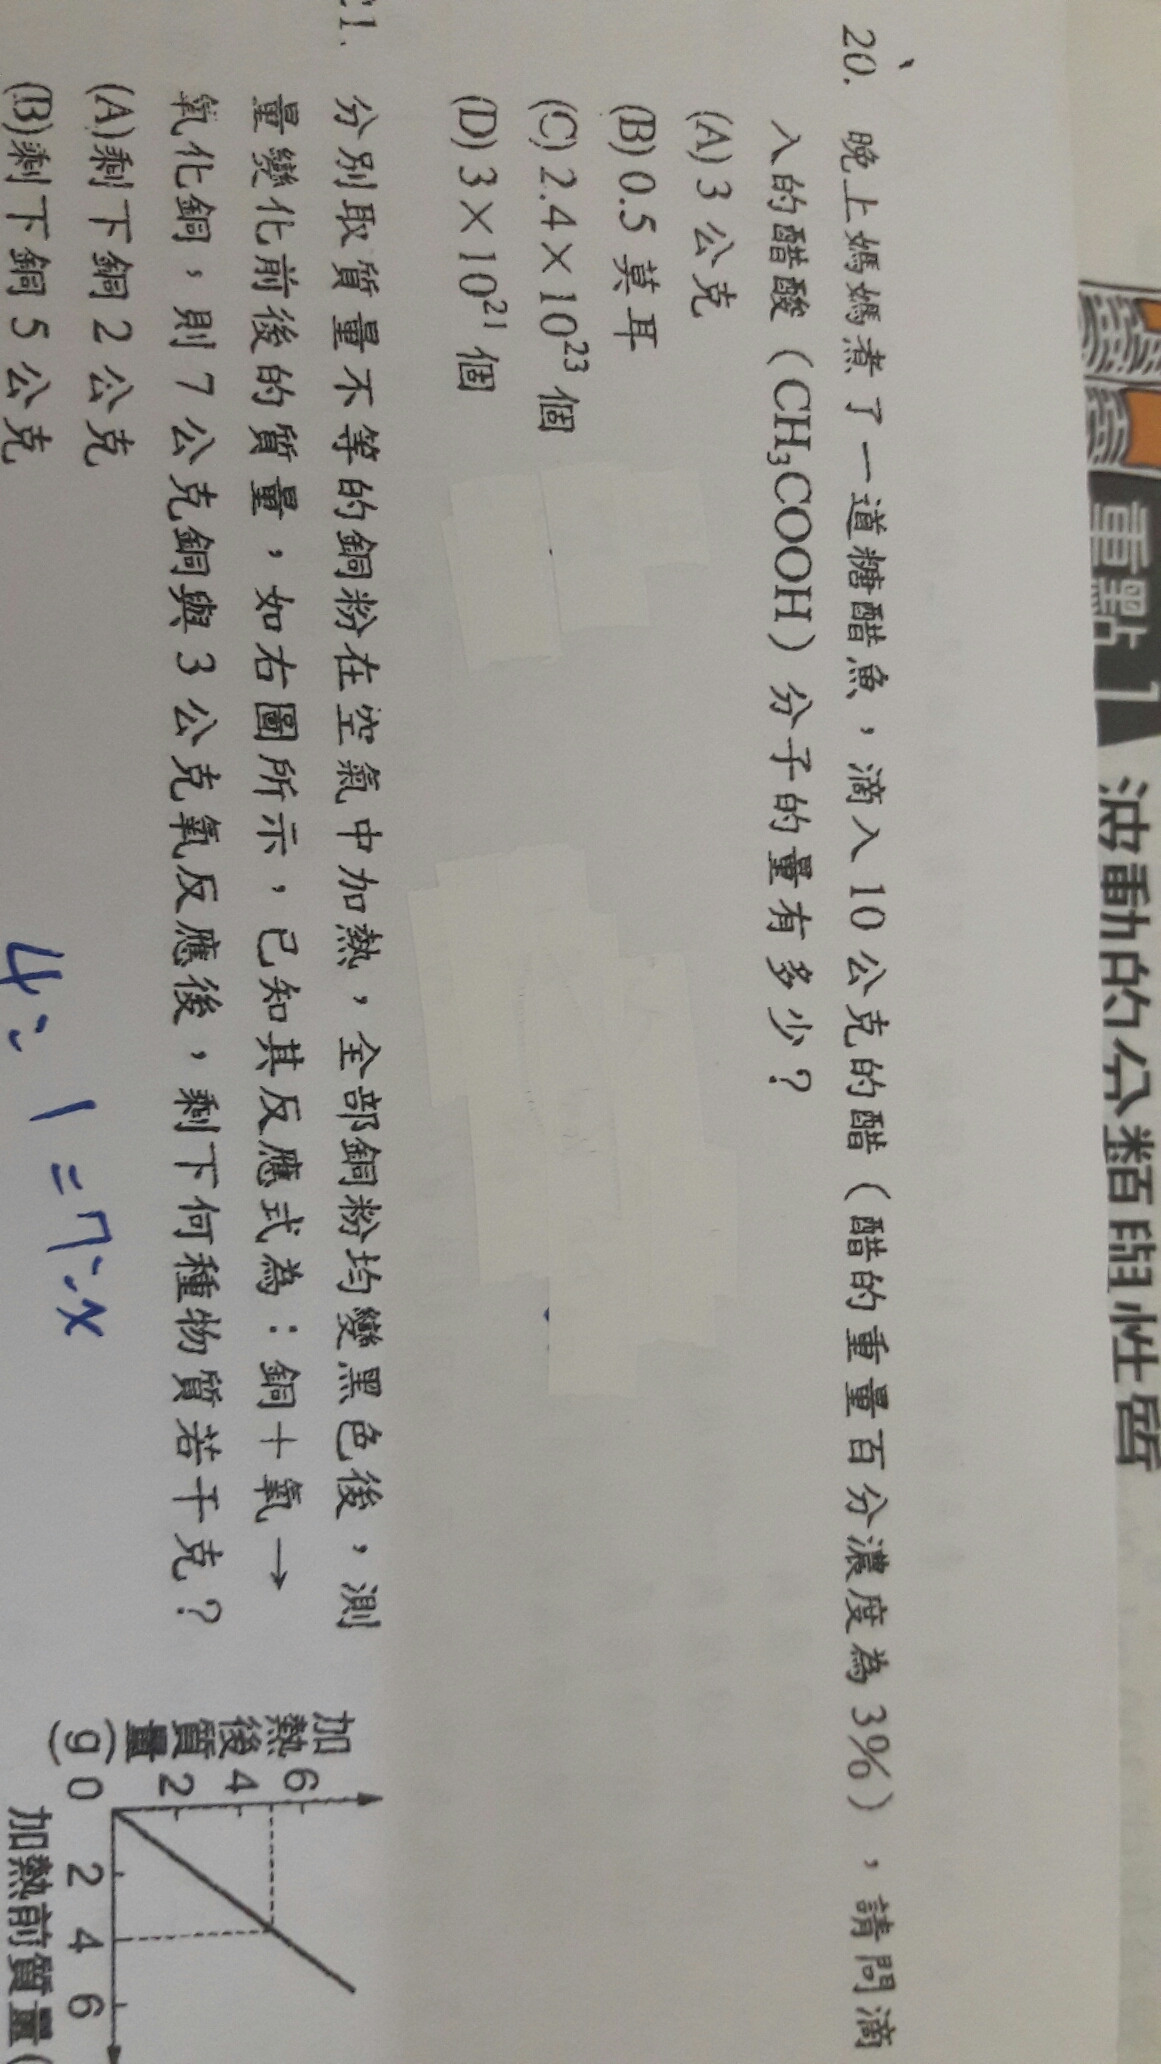 重點1 波動的分類與性質
20. 晚上媽媽煮了一道糖醋魚，滴入10公克的醋（醋的重量百分濃度為3%），請問滴
入的醋酸（CH₃COOH）分子的量有多少？
(A) 3 公克
(B) 0.5 莫耳
(C) 2.4×10²³ 個
(D) 3×10²¹ 個
1. 分別取質量不等的銅粉在空氣中加熱，全部銅粉均變黑色後，測
量變化前後的質量，如右圖所示，已知其反應式為：銅＋氧→
氧化銅，則7公克銅與3公克氧反應後，剩下何種物質若干克？
(A)剩下銅2公克
(B)剩下銅5公克
4:1=7:x
加熱後質量(g)
6
4
2
0
2 4 6
加熱前質量(